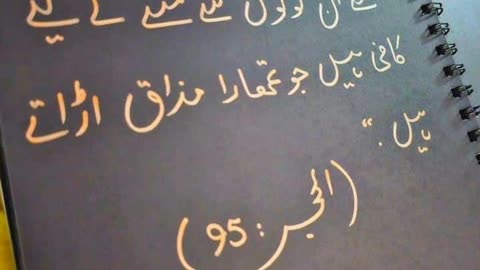 سے ان لوگوں سے نمٹنے کے لیے
کافی ہیں جو تمھارا مذاق اڑاتے
ہیں .“
(الحجر : 95)